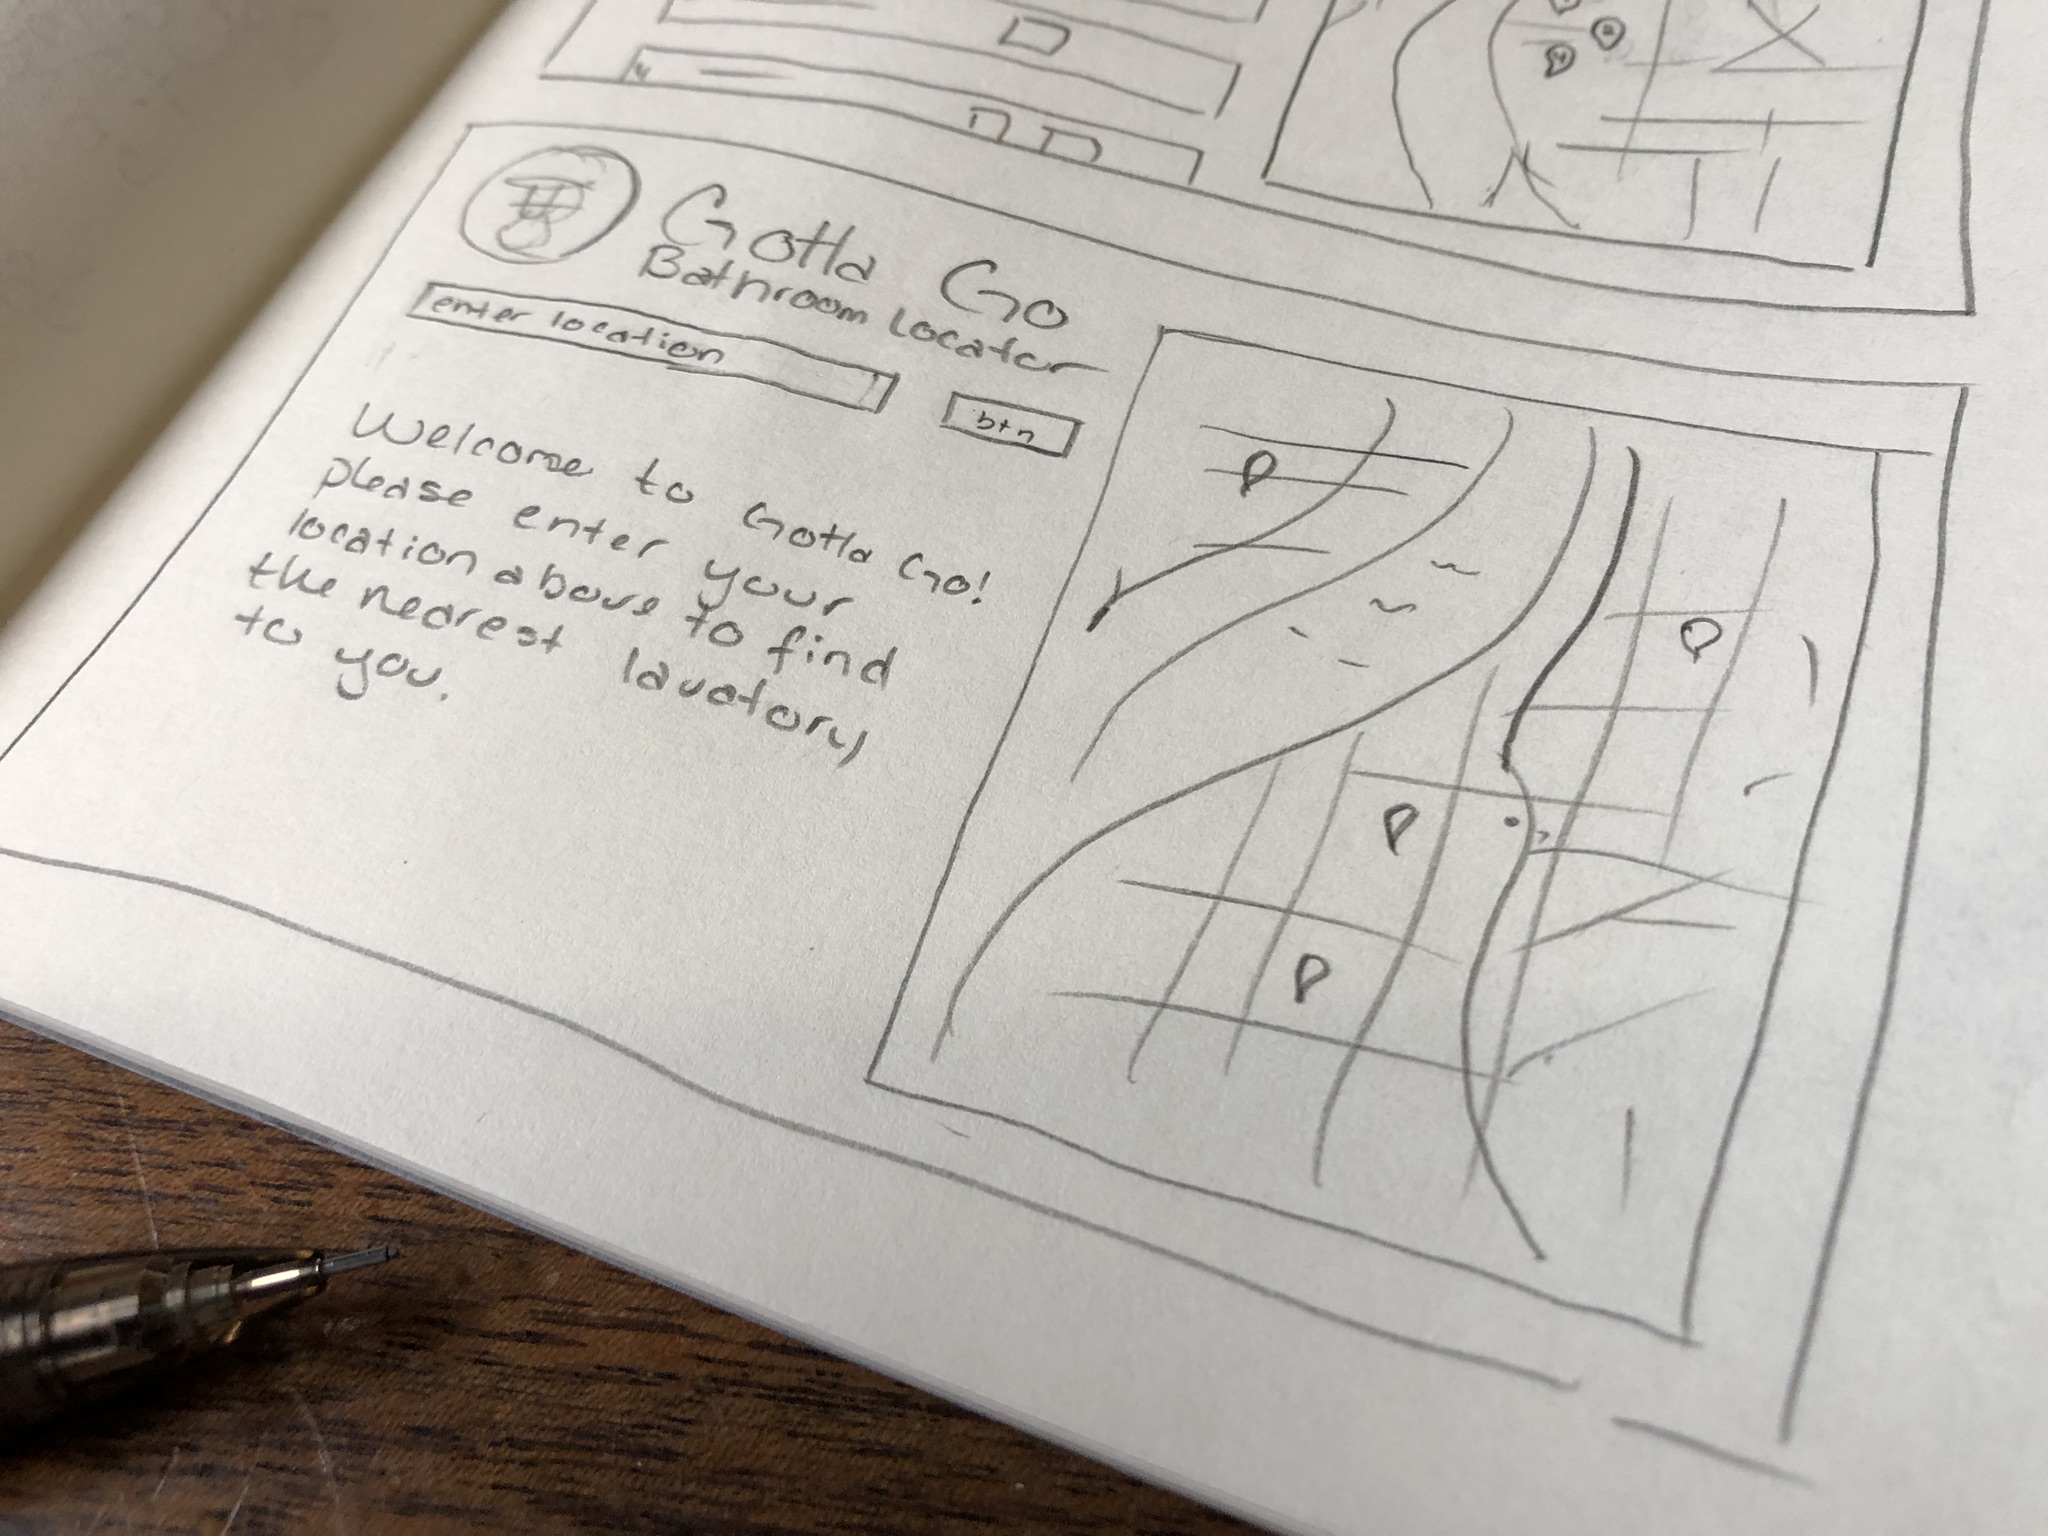 Gotta Go
Bathroom Locator
enter location
btn
Welcome to Gotta Go!
please enter your
location above to find
the nearest lavatory
to you.